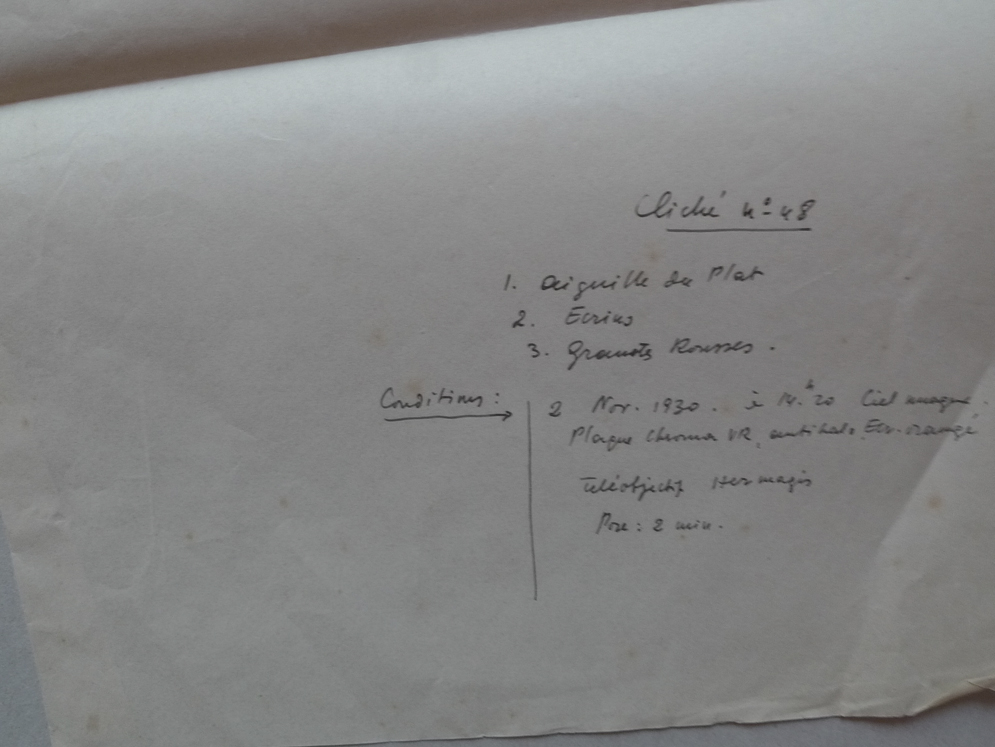 Cliché n° 48
1. Aiguille du Plat
2. Ecrins
3. Grandes Rousses.
Conditions: 2 Nov. 1930. à 14.h 20 Ciel nuageux.
Plaque chroma VR, antihalo, Ecr. orangé
Téléobjectif Hermagis
Pose: 2 min.